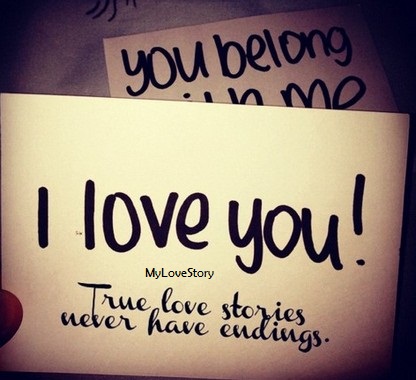 you belong
me
I love you!
MyLoveStory
True love stories
never have endings.